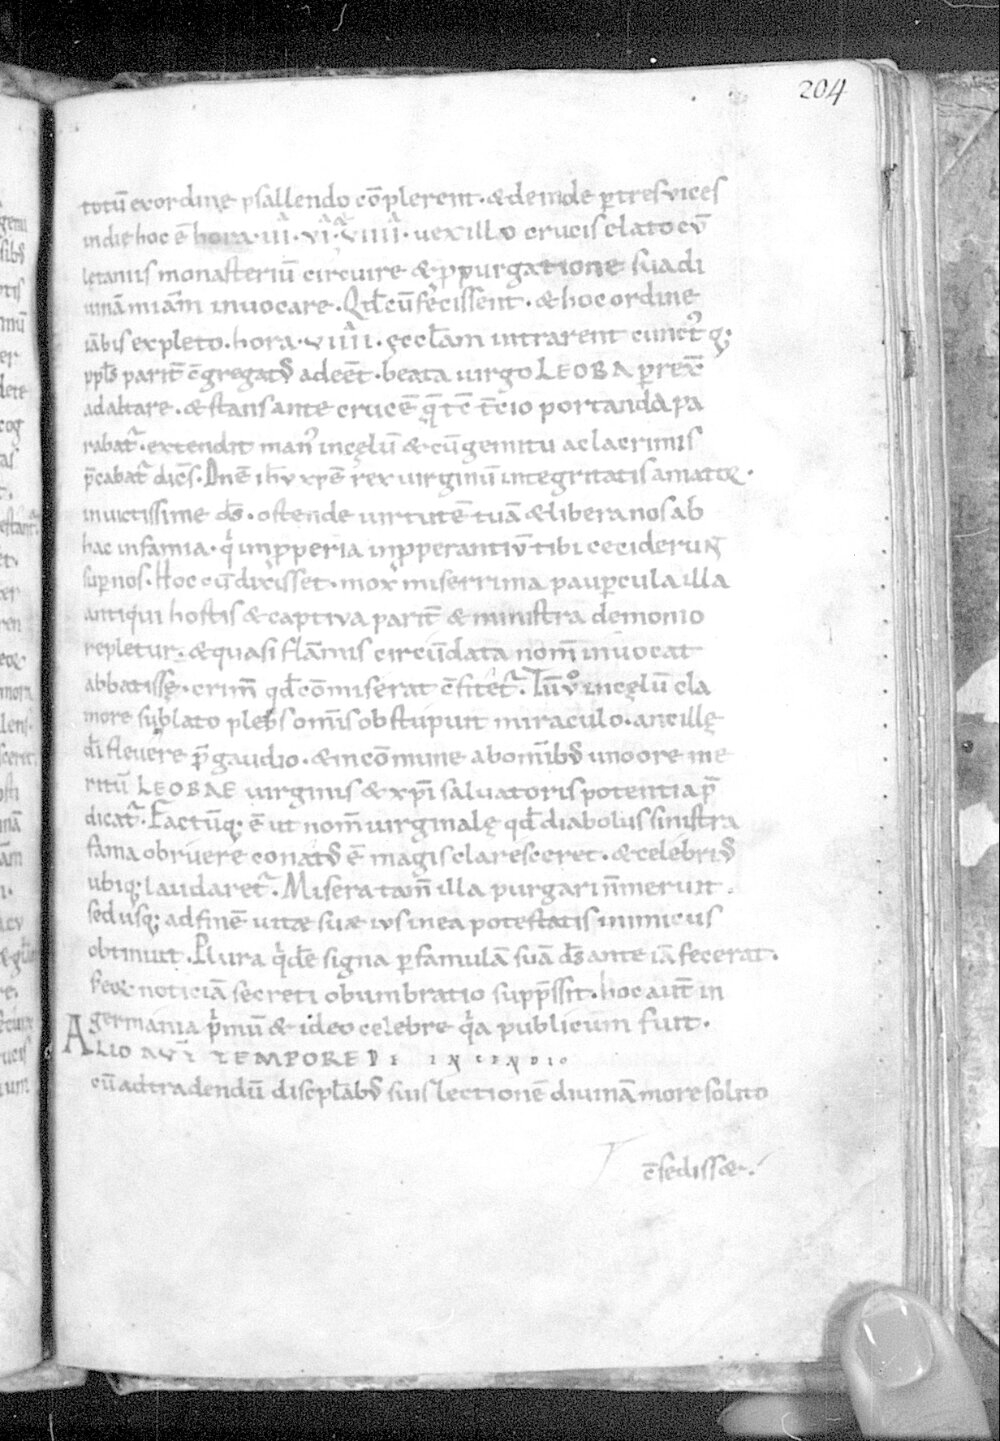 204
totū ex ordine psallendo cōplerent · & deinde ꝑ tres vices
in die hoc ē hora · iii · vi · viiii · uexillo crucis elato cū
letaniis monasteriū circuire & ꝓ purgatione sua di
uinā miām inuocare · Qd cū fecissent · & hoc ordine
expleto · hora · viiii · ęcclam intrarent cunctꝰ q;
ppls parit̄ c̄gregatus adeēt · beata uirgo LEOBA ꝑrex̄
ad altare · & stans ante crucē portanda pa
rabat̄ · extendit manꝰ in cęlū & cū gemitu ac lacrimis
p̄cabat̄ dicēs · Dnē ihu xpē rex uirginū integritatis amator ·
inuictissime ds · ostende uirtutē tuā & libera nos ab
hac infamia · qi impꝓperia inpꝓperantiū tibi ceciderunt
suꝑ nos · Hoc cū dixisset · mox miserrima pauꝑcula illa
antiqui hostis & captiua parit̄ & ministra demonio
repletur · & quasi flāmis circūdata nom̄ inuocat
abbatissę · crim̄ qd cōmiserat c̄fitet̄ · Tū uº in cęlū cla
more sublato plebs omīs obstupuit miraculo · ancillę
di fleuere p̄ gaudio · & in cōmune ab omībus uno ore me
ritū LEOBAE uirginis & xpi saluatoris potentia p̄
dicat̄ · Factūq; ē ut nom̄ uirginalę qd diabolus sinistra
fama obruere conatus ē magis claresceret · & celebrius
ubiq; laudaret̄ · Misera tam̄ illa purgari n̄ meruit ·
sed usq; ad finē uitæ suæ ius in ea potestatis inimicus
obtinuit · Plura qide signa ꝑ famulā suā ds ante iā fecerat ·
seor noticiā secreti obumbratio supp̄ssit · hoc aut̄ in
germania p̄mū & ideo celebre qa publicum fuit ·
ALIO AUT̄ TEMPORE DE INCENDIO
cū ad tradendū disciplabus suis lectionē diuinā more solito
c̄sedissæ ·